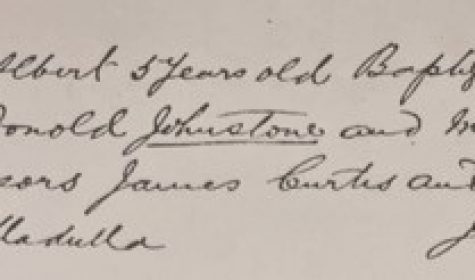 Albert 5 Years old Bapti
Donald Johnstone and M
sors James Curtis and
lladulla